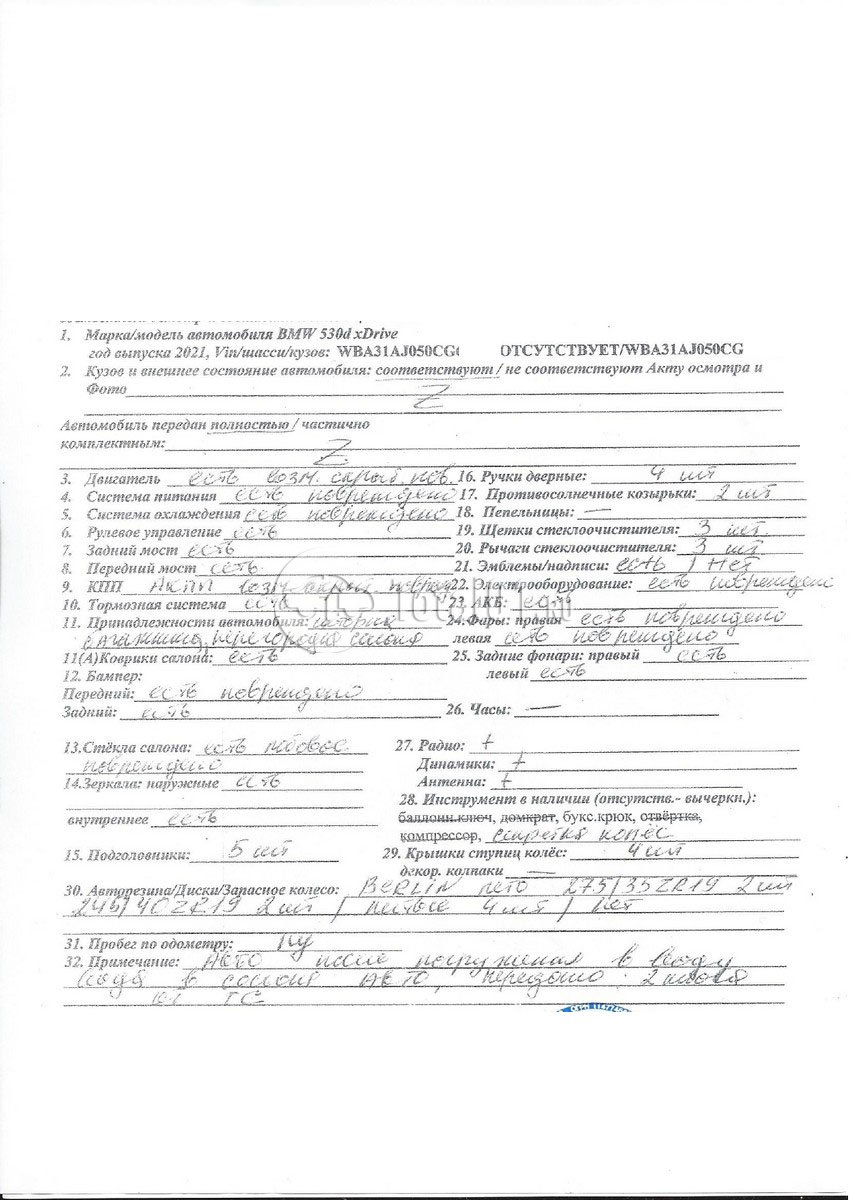 1. Марка/модель автомобиля BMW 530d xDrive
год выпуска 2021, Vin/шасси/кузов: WBA31AJ050CG ОТСУТСТВУЕТ/WBA31AJ050CG
2. Кузов и внешнее состояние автомобиля: соответствуют / не соответствуют Акту осмотра и
Фото Z
Автомобиль передан полностью / частично
комплектным: Z
3. Двигатель есть возм. скрыт. пов. 16. Ручки дверные: 4 шт
4. Система питания есть повреждено 17. Противосолнечные козырьки: 2 шт
5. Система охлаждения есть повреждено 18. Пепельницы: —
6. Рулевое управление есть 19. Щетки стеклоочистителя: 3 шт
7. Задний мост есть 20. Рычаги стеклоочистителя: 3 шт
8. Передний мост есть 21. Эмблемы/надписи: есть / нет
9. КПП АКПП возм. скрыт поврежд 22. Электрооборудование: есть повреждено
10. Тормозная система есть 23. АКБ: есть
11. Принадлежности автомобиля: шторка 24. Фары: правая есть повреждено
багажника, перегородка салона левая есть повреждено
11(А)Коврики салона: есть 25. Задние фонари: правый есть
12. Бампер: левый есть
Передний: есть повреждено
Задний: есть 26. Часы: —
13.Стёкла салона: есть лобовое 27. Радио: +
повреждено Динамики: +
14.Зеркала: наружные есть Антенна: +
28. Инструмент в наличии (отсутств.- вычеркн.):
внутреннее есть баллонн.ключ, домкрат, букс.крюк, отвёртка,
компрессор, секретка колёс
15. Подголовники: 5 шт 29. Крышки ступиц колёс: 4 шт
декор. колпаки —
30. Авторезина/Диски/Запасное колесо: BERLIN лето 275/35ZR19 2шт
245/40ZR19 2шт / литые 4шт / нет
31. Пробег по одометру: ну
32. Примечание: Авто после погружения в воду
вода в салоне авто, передано 2 ключа